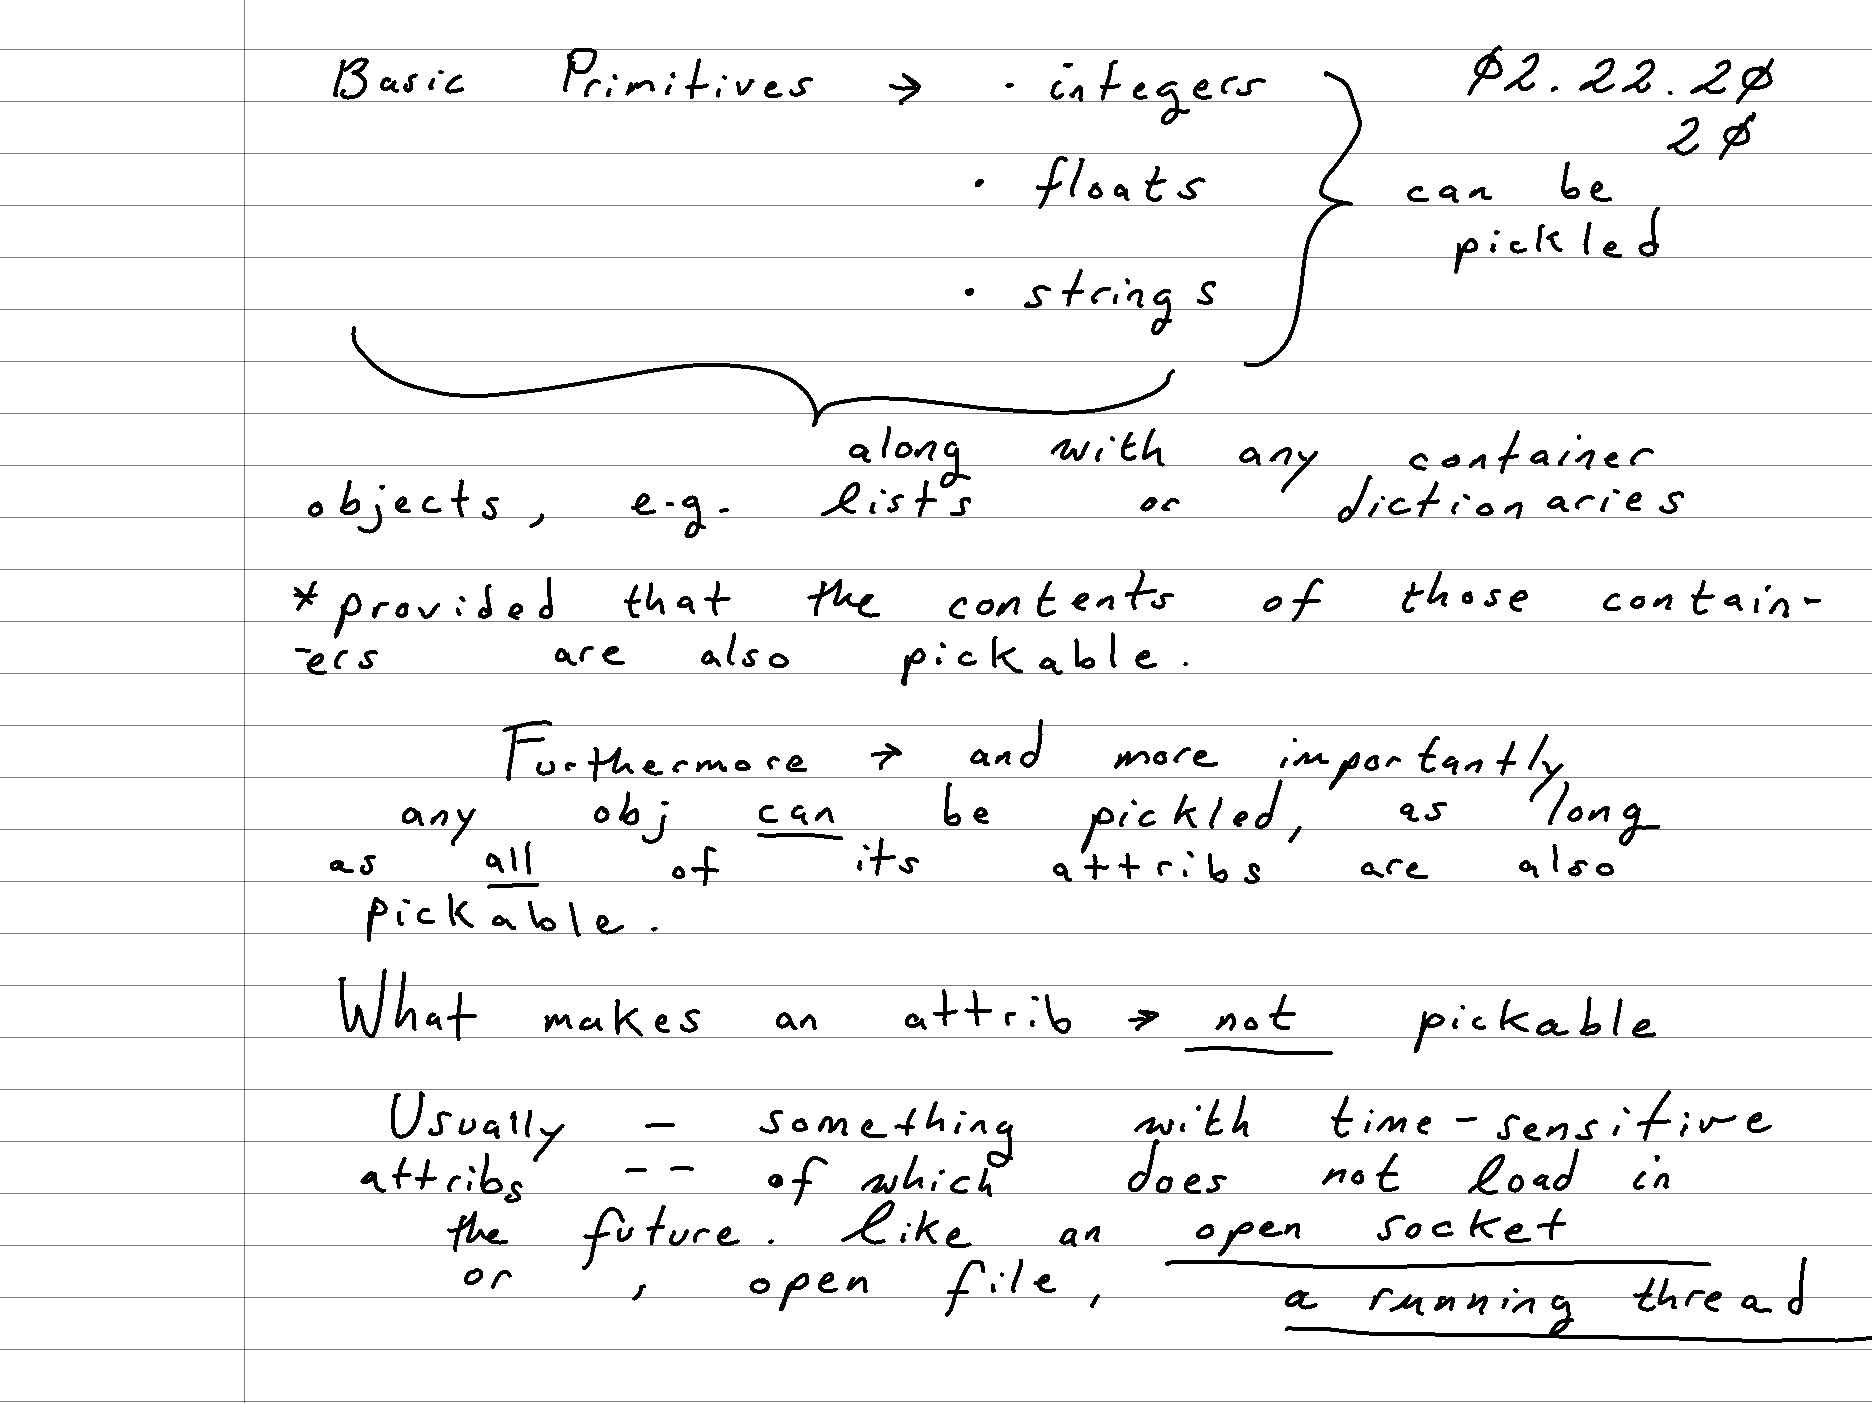 Basic Primitives → · integers
02.22.20
20
· floats
can be
pickled
· strings
along with any container
objects, e.g. lists or dictionaries
* provided that the contents of those contain-
-ers are also pickable.
Furthermore → and more importantly
any obj can be pickled, as long
as all of its attribs are also
pickable.
What makes an attrib → not pickable
Usually - something with time-sensitive
attribs -- of which does not load in
the future. like an open socket
or , open file, a running thread